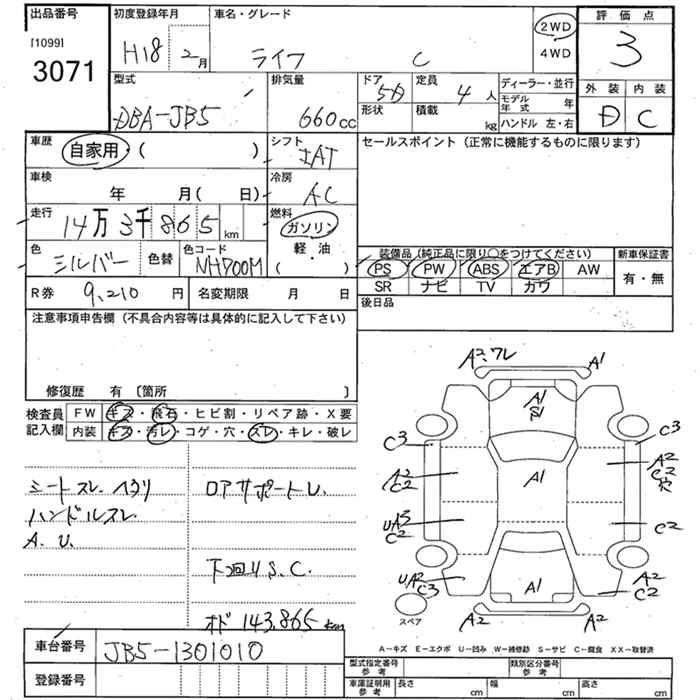 出品番号
[1099]
3071
初度登録年月
H18 2月
車名・グレード
ライフ C
2WD
4WD
評価点
3
外装 内装
D C
型式
DBA-JB5
排気量
660cc
ドア 定員
5D 4人
形状 積載
kg
ディーラー・並行
モデル年式 年
ハンドル 左・右
車歴
自家用 ( )
シフト
IAT
セールスポイント (正常に機能するものに限ります)
車検
年 月( 日)
冷房
AC
走行
14万3千865km
燃料
ガソリン
軽・油
( )
色
シルバー
色替
色コード
NH700M
装備品 (純正品に限り○をつけてください)
新車保証書
PS PW ABS エアB AW
SR ナビ TV カワ
有・無
R券 9,210円
名変期限 月 日
後日品
注意事項申告欄 (不具合内容等は具体的に記入して下さい)
修復歴 有 〔箇所 〕
検査員記入欄
FW キズ・飛石・ヒビ割・リペア跡・X要
内装 キズ・汚レ・コゲ・穴・スレ・キレ・破レ
シートスレ ヘタリ
ハンドルスレ
A.U.
ロアサポートU.
下回りS.C.
オド 143,865km
A2.ワレ A1
A1
S1
C3 C3
A2
C2
A1
A2
C2
穴
UA2
C2
C2
UA2
C3
A1
A2
C2
A2 A2
スペア
A-キズ E-エクボ U-凹み W-補修跡 S-サビ C-腐食 XX-取替済
車台番号
JB5-1301010
登録番号
型式指定番号
参考
類別区分番号
参考
車庫証明用
参考
長さ cm 幅 cm 高さ cm